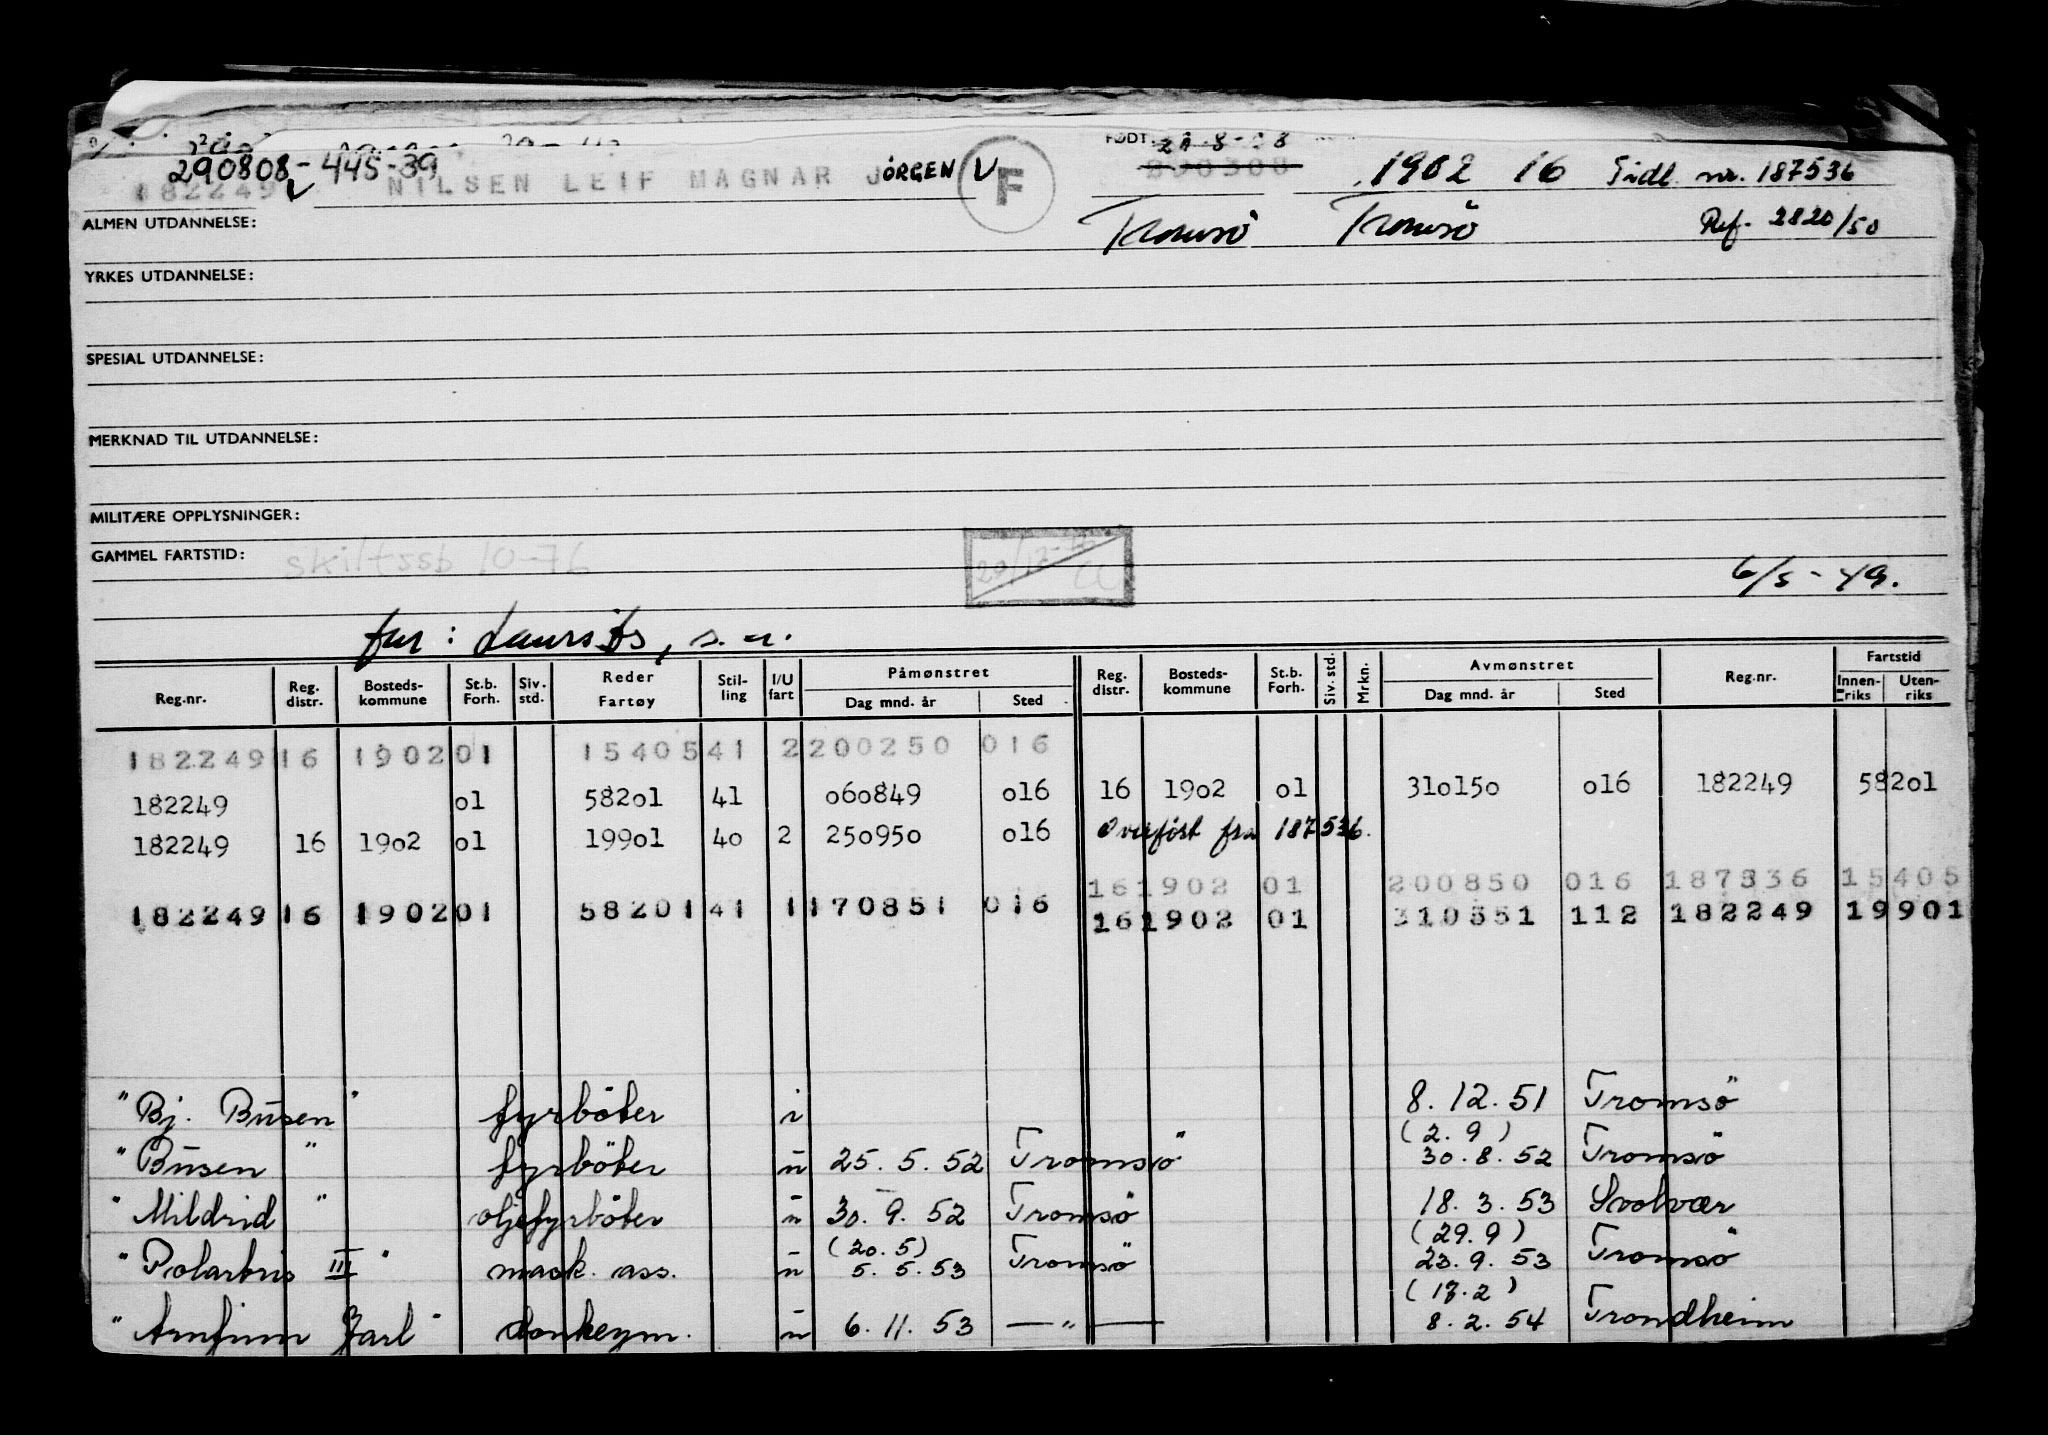 FØDT: 29-8-08
290808-445-39
182249 NILSEN LEIF MAGNAR JØRGEN V F 1902 16 Tidl. nr. 187536
ALMEN UTDANNELSE: Tromsö Tromsö Ref. 2820/50
YRKES UTDANNELSE:
SPESIAL UTDANNELSE:
MERKNAD TIL UTDANNELSE:
MILITÆRE OPPLYSNINGER:
GAMMEL FARTSTID: skiltssb 10-76
6/5-49.
far: Laurits, s.a.
Reg.nr. Reg. distr. Bosteds-kommune St.b. Forh. Siv. std. Reder Fartøy Stil-ling I/U fart Påmønstret Dag mnd. år Sted Reg. distr. Bosteds-kommune St.b. Forh. Siv. std. Mrkn. Avmønstret Dag mnd. år Sted Reg.nr. Fartstid Innen-riks Uten-riks
182249 16 1902 01 15405 41 2 200250 016
182249 o1 582o1 41 o6o849 o16 16 19o2 o1 31o15o o16 182249 582o1
182249 16 19o2 o1 199o1 4o 2 25o95o o16 Overfört fra 187536.
16 1902 01 200850 016 187536 15405
182249 16 1902 01 58201 41 1 170851 016 16 1902 01 310551 112 182249 19901
"Bj. Busen" fyrböter i 8. 12. 51 Tromsö
(2. 9)
"Busen" fyrböter u 25. 5. 52 Tromsö 30. 8. 52 Tromsö
"Mildrid" oljefyrböter u 30. 9. 52 Tromsö 18. 3. 53 Svolvær
(20. 5) (29. 9)
"Polarbris III" mask. ass. u 5. 5. 53 Tromsö 23. 9. 53 Tromsö
(17. 2)
"Arnfinn Jarl" donkeym. u 6. 11. 53 — " — 8. 2. 54 Trondheim